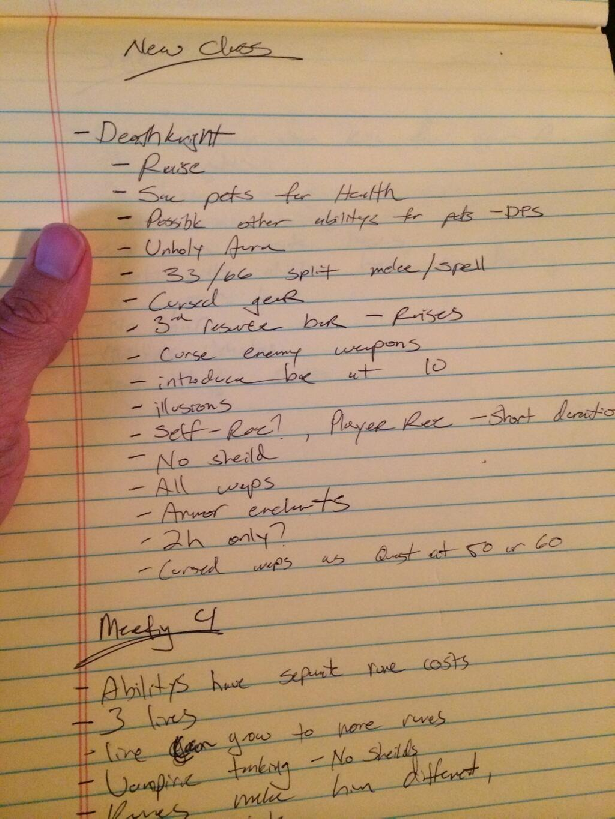 New Class
- Deathknight
- Raise
- Sac pets for Health
- Possible other abilitys for pets - DPS
- Unholy Aura
- 33/66 split melee/spell
- Cursed gear
- 3rd resource bar - Raises
- Curse enemy weapons
- introduce bar at 10
- illusions
- Self-Rec?, Player Rec - Short duratio
- No sheild
- All weps
- Armor enchants
- 2h only?
- Cursed weps as Quest at 50 or 60
Meeting 4
- Abilitys have seperit rune costs
- 3 lines
- line grow to more runes
- Vampiric tanking - No Sheilds
- Runes make him different,